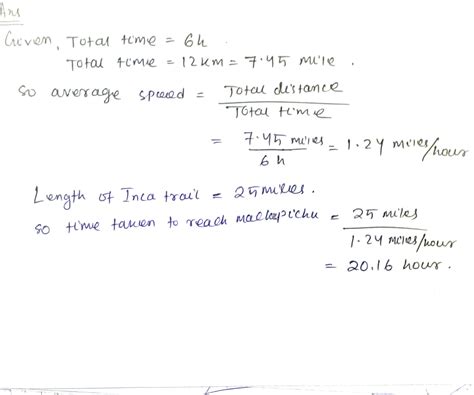 Ans
Given, Total time = 6h
Total time = 12km = 7.45 mile.
So average speed = Total distance
Total time
= 7.45 miles = 1.24 miles/hour
6h
Length of Inca trail = 25 miles.
So time taken to reach machupichu = 25 miles
1.24 miles/hour
= 20.16 hour.